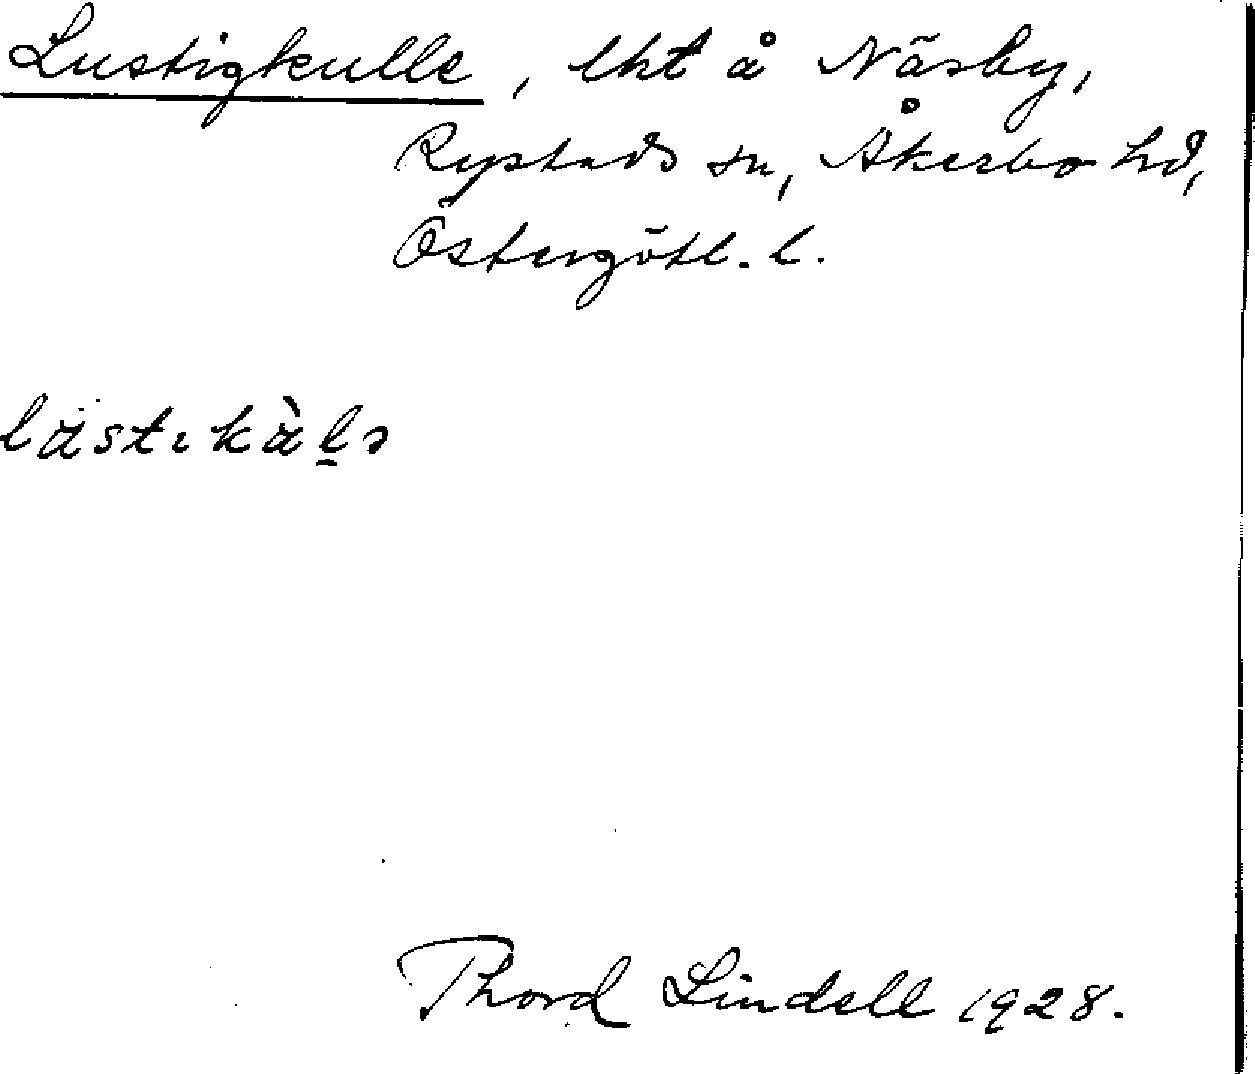 Lustigkulle, lht å Näsby,
Rystads sn, Åkerbo hd,
Östergötl. l.
Thord Lindell 1928.